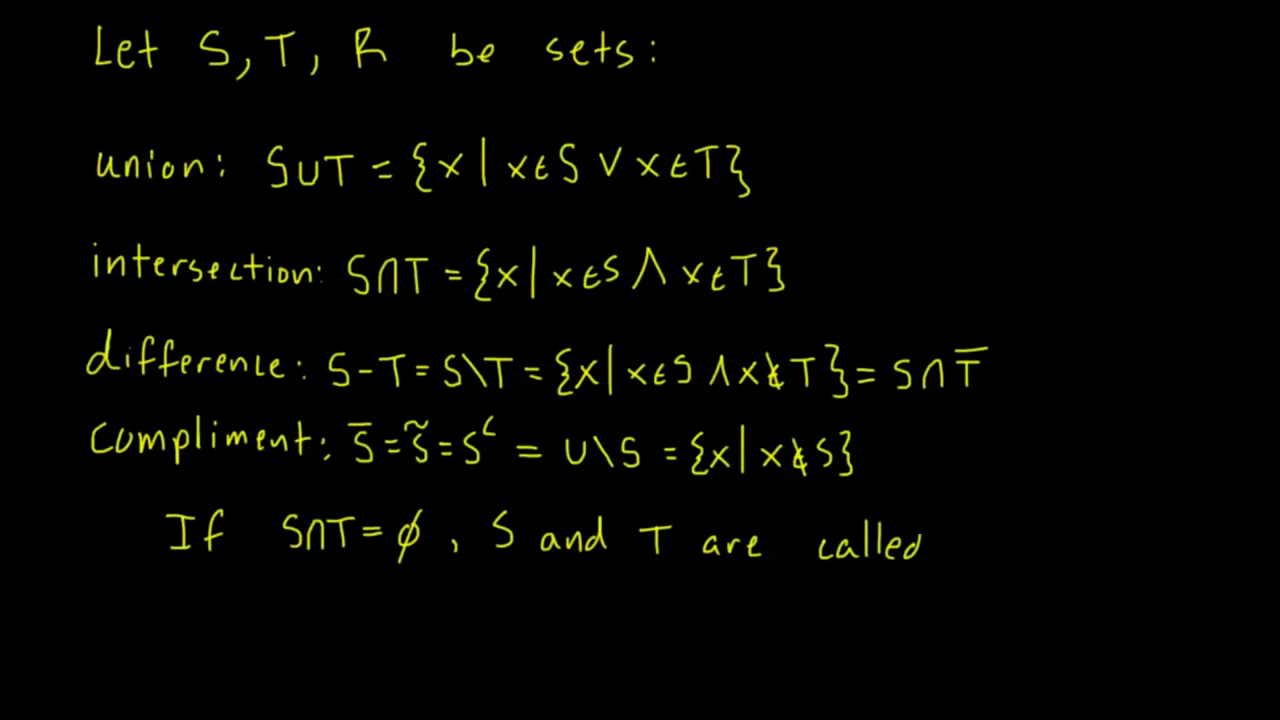 Let S, T, R be sets:
union: S∪T = {x | x∈S ∨ x∈T}
intersection: S∩T = {x | x∈S ∧ x∈T}
difference: S-T = S\T = {x | x∈S ∧ x∉T} = S∩T̅
compliment: S̅ = S̃ = Sᶜ = U\S = {x | x∉S}
If S∩T = ∅, S and T are called